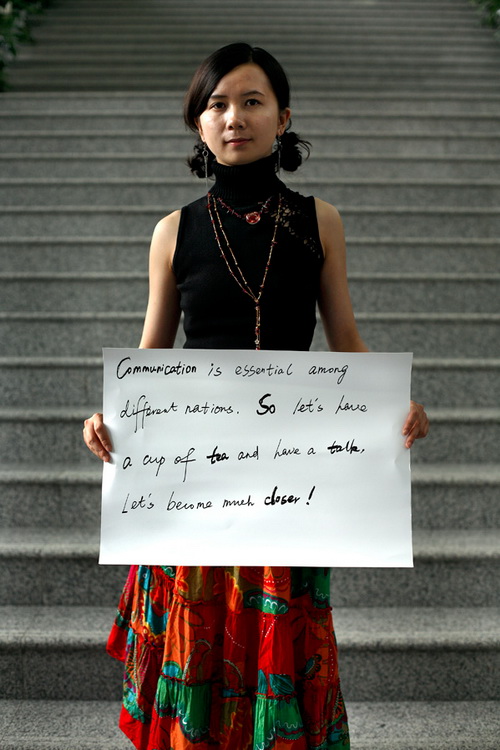 Communication is essential among
different nations. So let's have
a cup of tea and have a talk.
Let's become much closer!